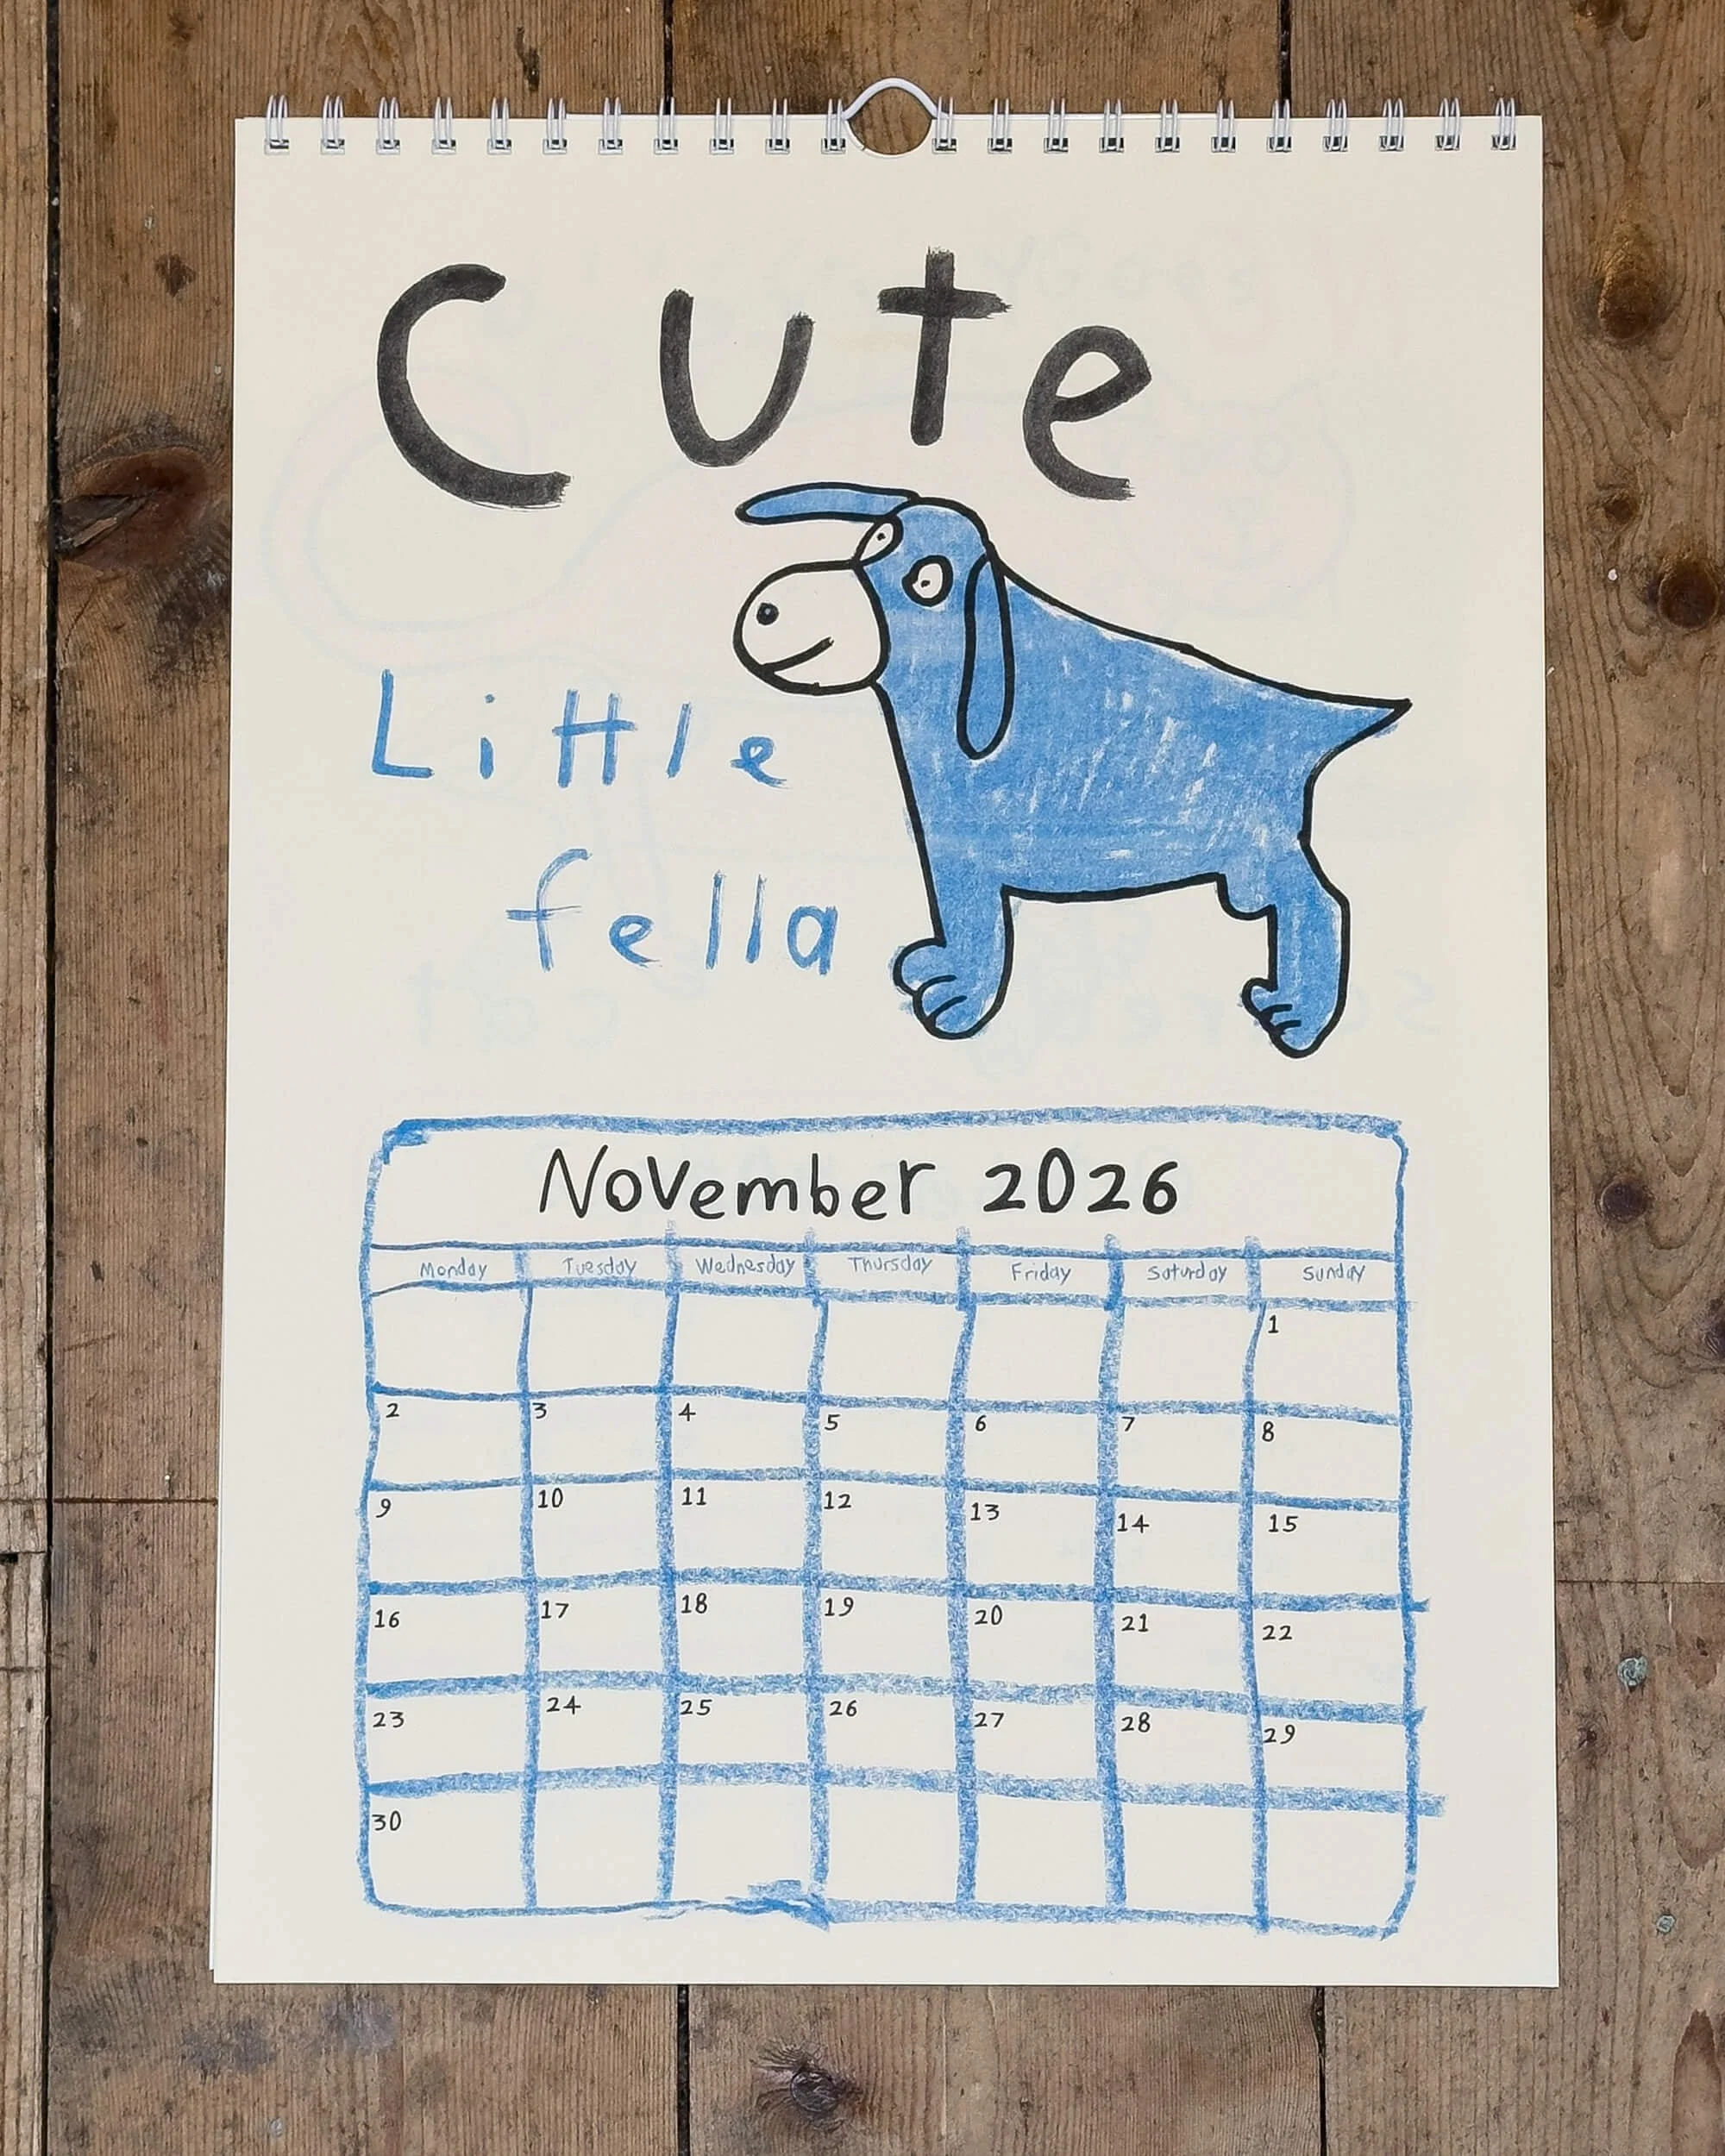 Cute
Little
fella
November 2026
Monday Tuesday Wednesday Thursday Friday Saturday Sunday
1
2 3 4 5 6 7 8
9 10 11 12 13 14 15
16 17 18 19 20 21 22
23 24 25 26 27 28 29
30